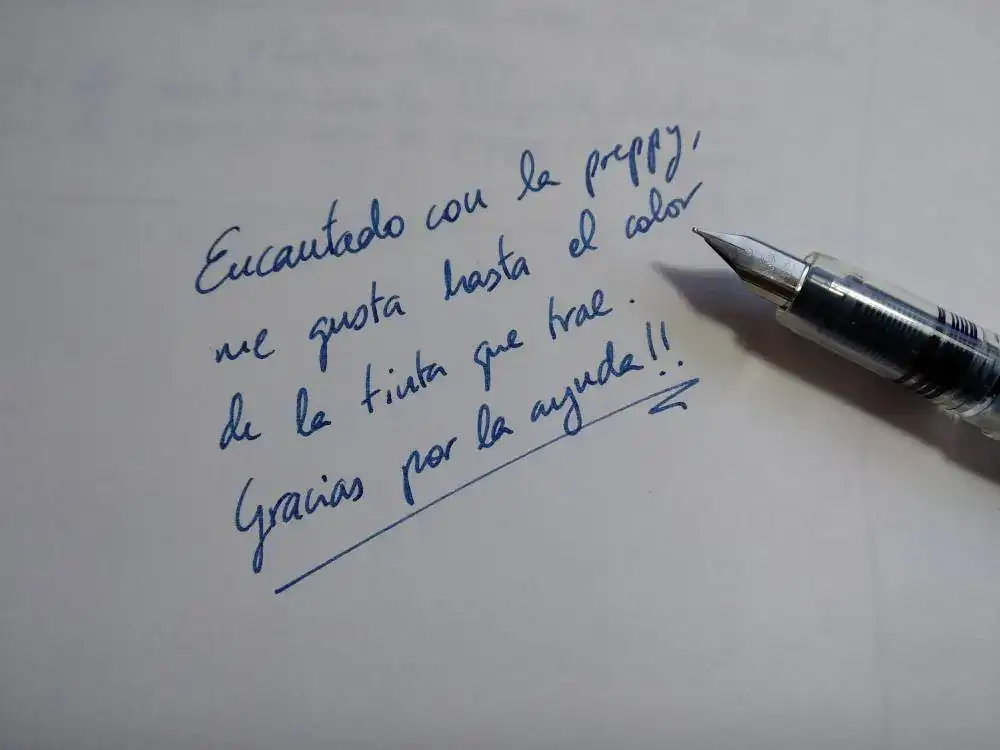 Encantado con la preppy,
me gusta hasta el color
de la tinta que trae.
Gracias por la ayuda!!